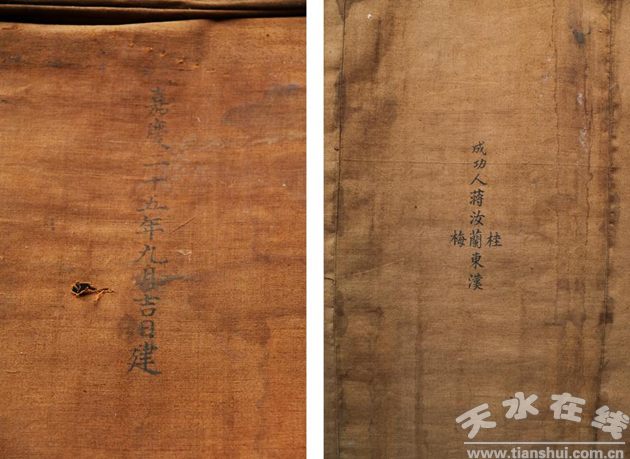 嘉慶二十五年九月吉日建
桂
成功人蔣汝蘭東漢
梅
天水在线
www.tianshui.com.cn